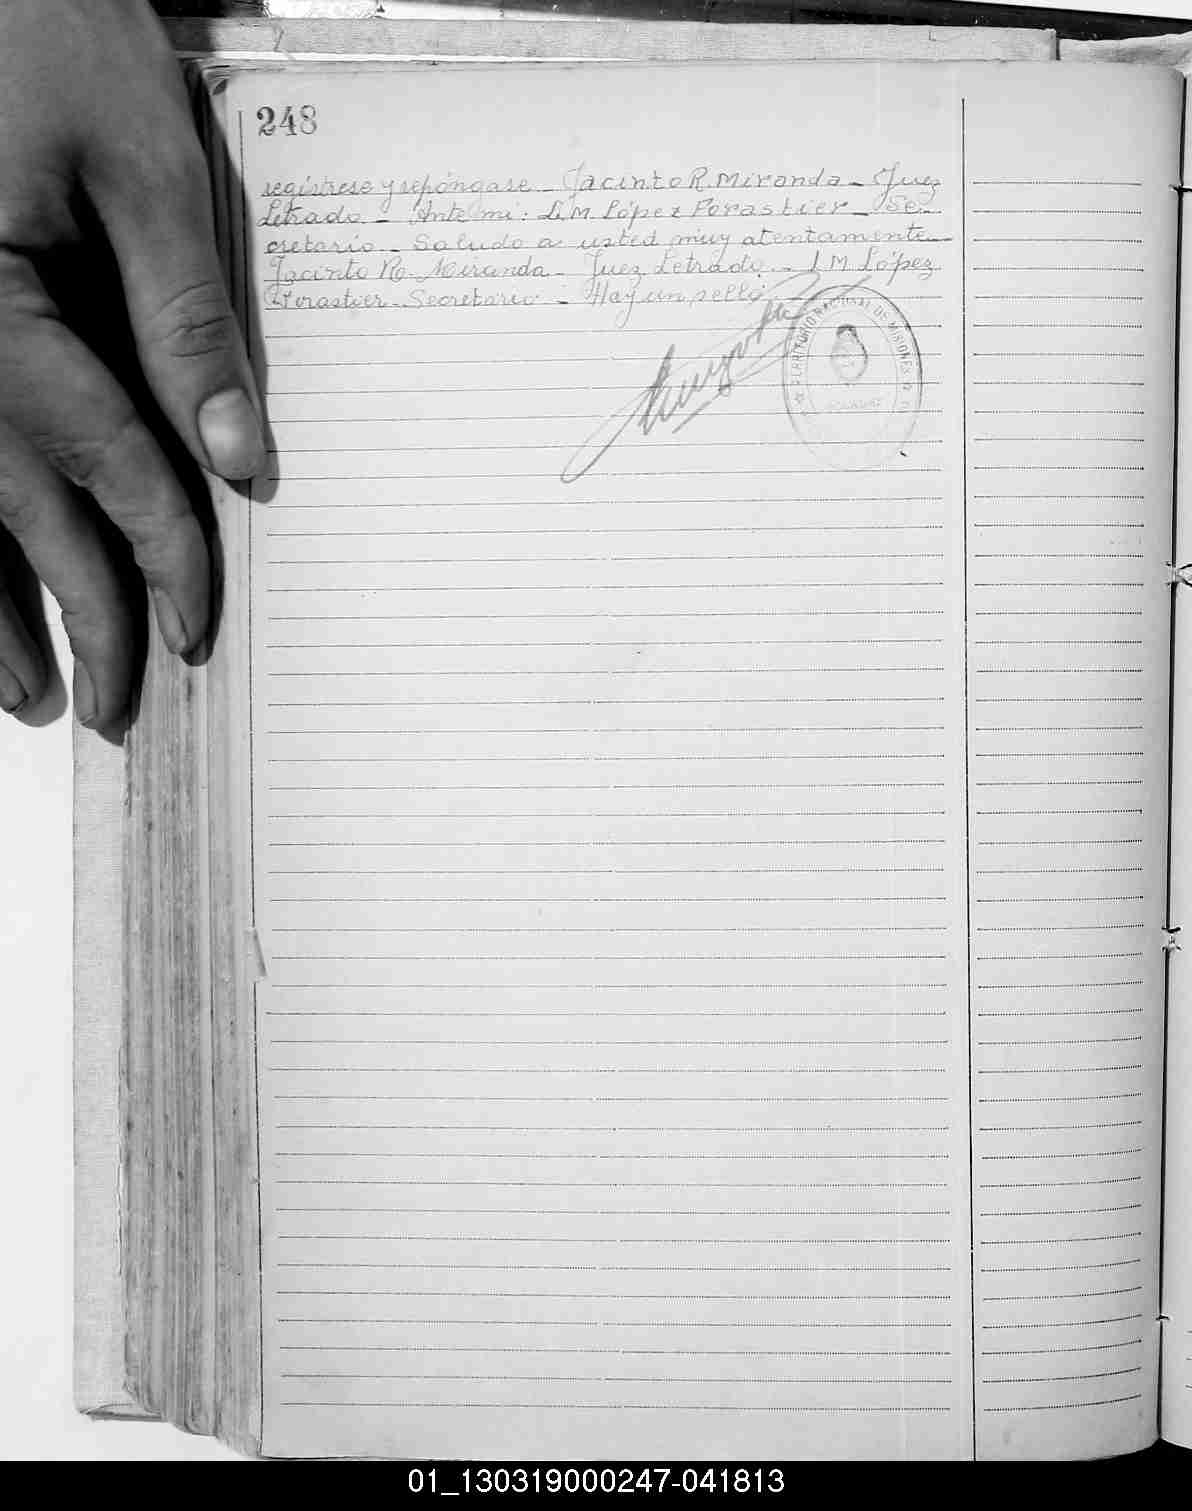 248
regístrese y repóngase _ Jacinto R. Miranda _ Juez
Letrado _ Ante mi: L. M. López Forastier _ Se-
cretario _ Saludo a usted muy atentamente _
Jacinto R. Miranda _ Juez Letrado _ L M López
Forastier _ Secretario _ Hay un sello
TERRITORIO NACIONAL DE MISIONES
01_130319000247-041813